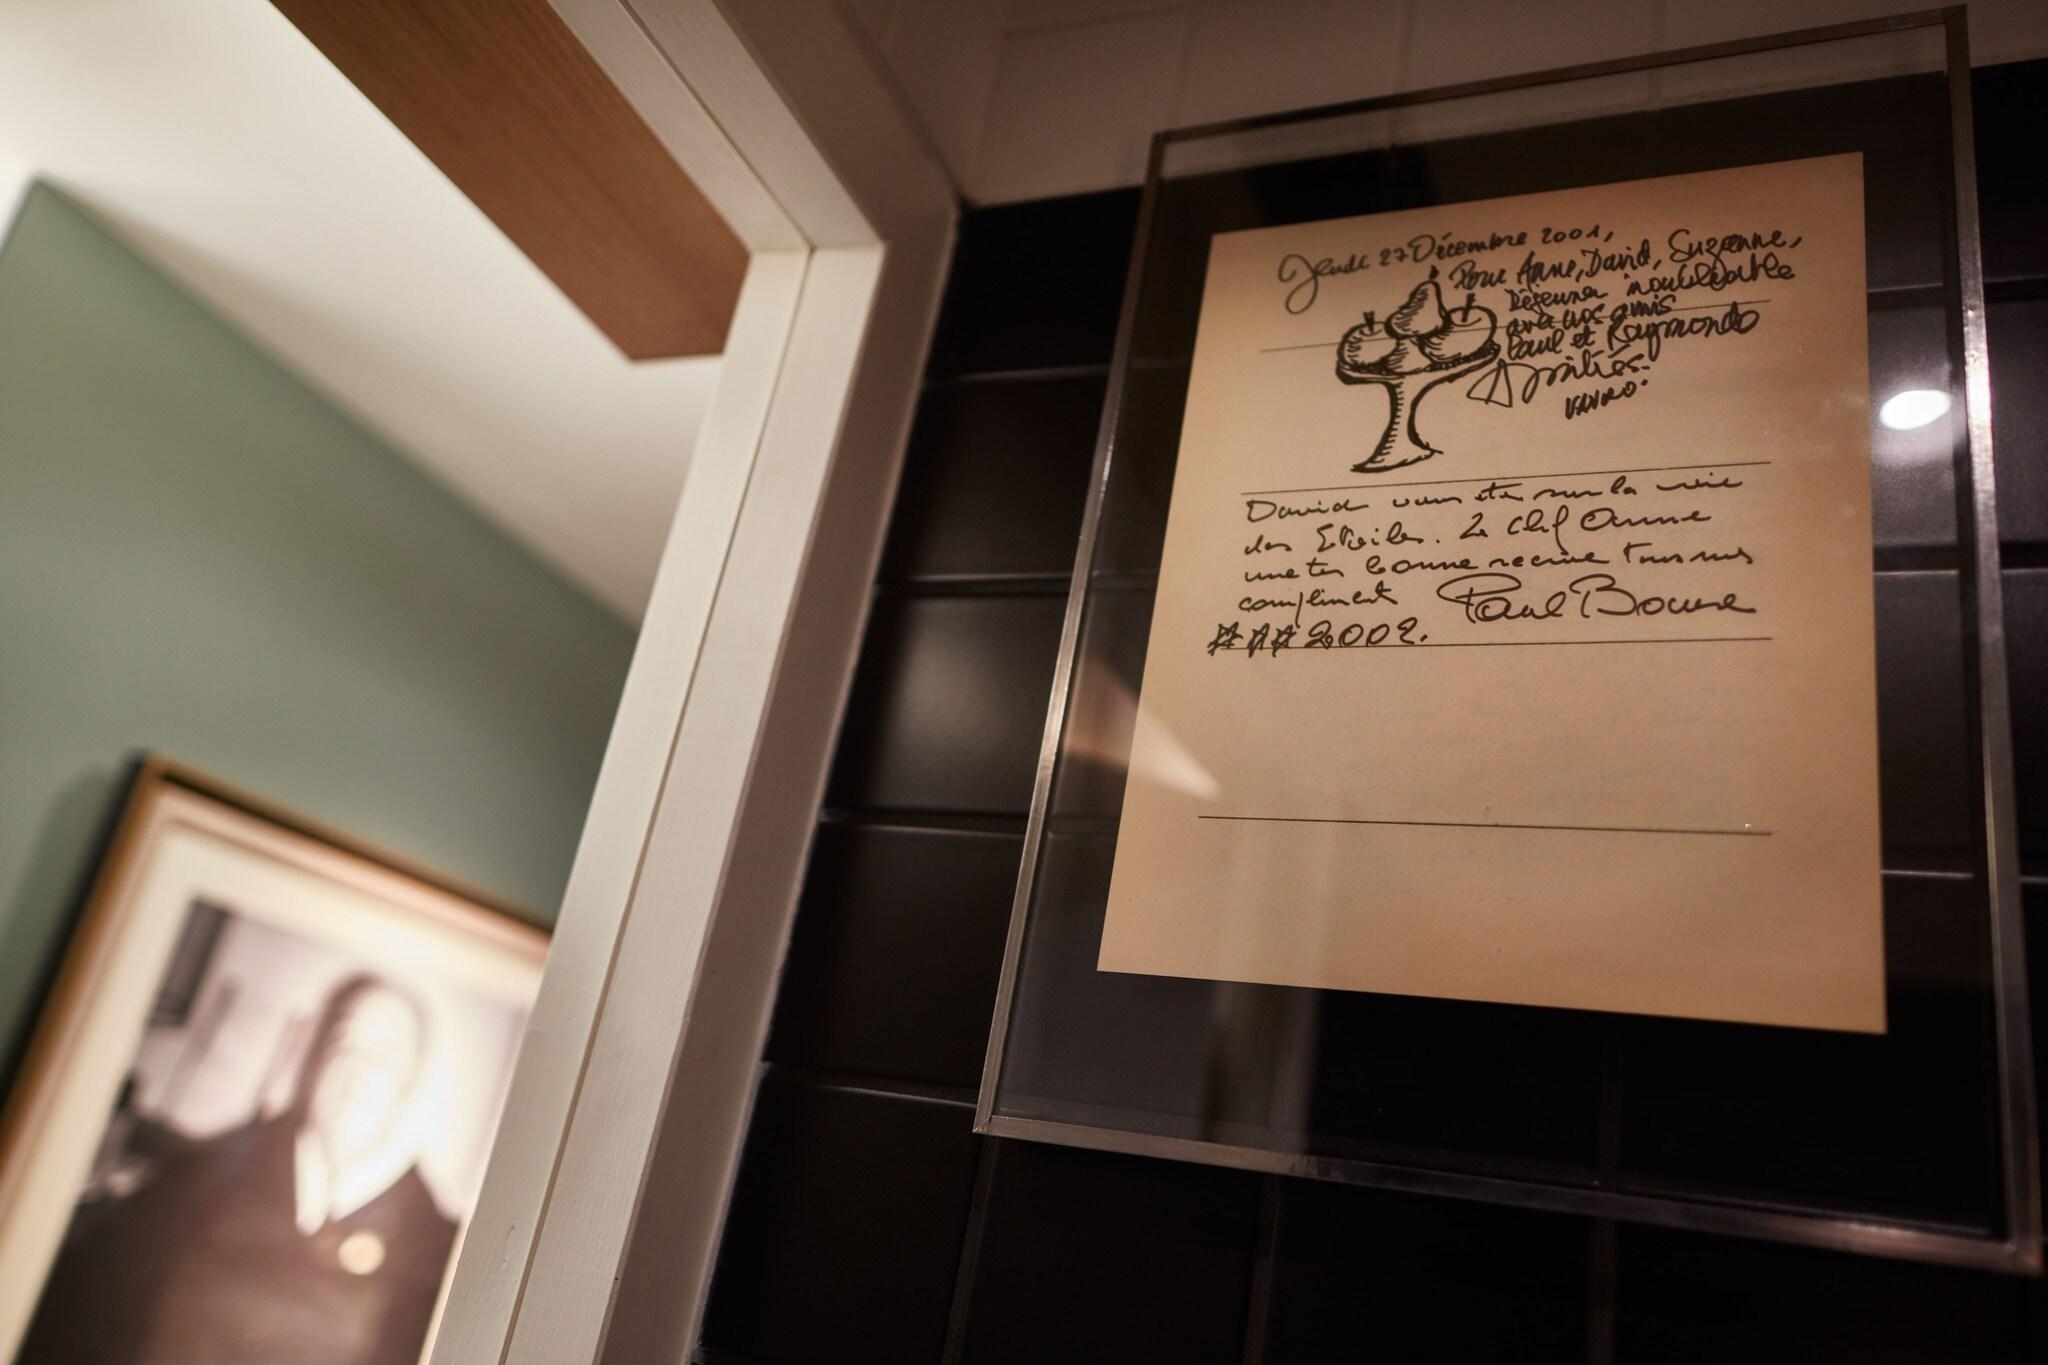 Jeudi 27 Décembre 2001,
Pour Anne, David, Suzanne,
Déjeuner inoubliable
avec nos amis
Paul et Raymonde
Amitiés.
David vous etes sur la voie
des Etoiles. Le chef Anne
une tres bonne recrue tous mes
compliments Paul Bocuse
☆☆☆ 2002.